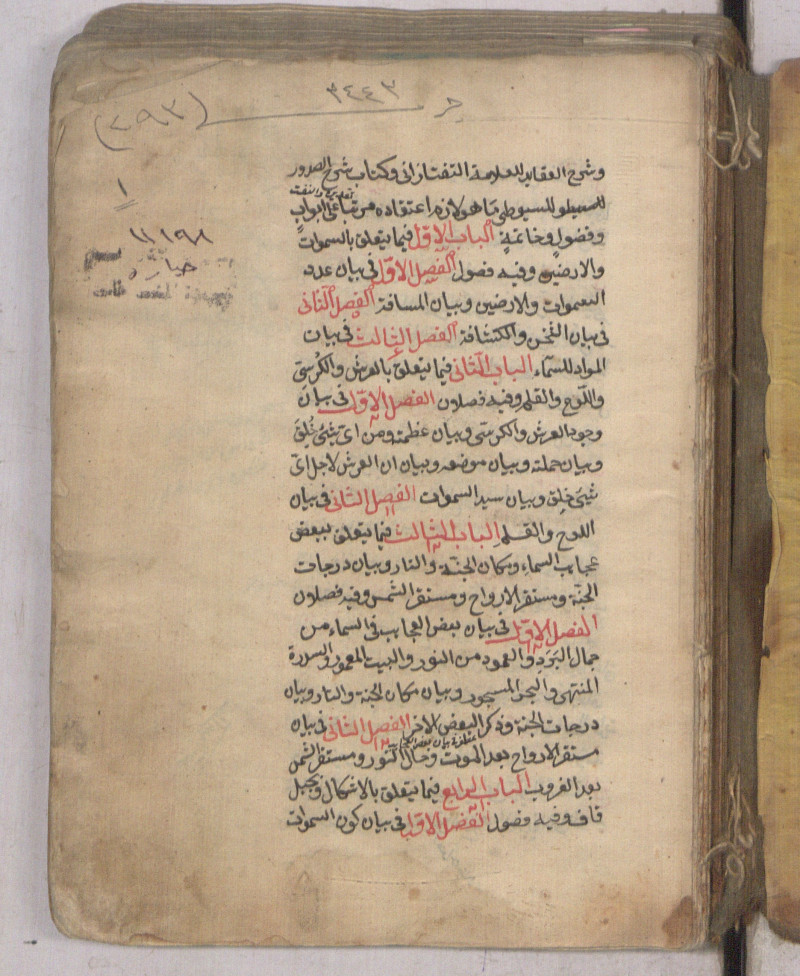 ٣٤٤٣
(٢٩٣)
١
١١١٩٨
وشرح العقايد للعلامة التفتازانى وكتاب شرح الصدور
للسيوطى مما هو لازم اعتقاده مرتبا على ابواب
وفصول وخاتمة الباب الاول فيما يتعلق بالسموات
والارضين وفيه فصول الفصل الاول فى بيان عدد
السموات والارضين وبيان المسافة الفصل الثانى
فى بيان الثخن والكثافة الفصل الثالث فى بيان
المواد للسماء الباب الثانى فيما يتعلق بالعرش والكرسى
واللوح والقلم وفيه فصلان الفصل الاول فى بيان
وجود العرش والكرسى وبيان عظمته ومن اى شئ خلق
وبيان حملته وبيان موضعه وبيان ان العرش لاجل اى
شئ خلق وبيان سيد السموات الفصل الثانى فى بيان
اللوح والقلم الباب الثالث فيما يتعلق ببعض
عجايب السماء ومكان الجنة والنار وبيان درجات
الجنة ومستقر الارواح ومستقر الشمس وفيه فصلان
الفصل الاول فى بيان بعض العجايب فى السماء من
جمال البرد والعمود من النور والبيت المعمور والسدرة
المنتهى والبحر المسجور وبيان مكان الجنة والنار وبيان
درجات الجنة وذكر البعض الاخر الفصل الثانى فى بيان
مستقر الارواح بعد الموت وحال ومستقر الشمس
بعد الغروب الباب الرابع فيما يتعلق بالاشكال وبجبل
قاف وفيه فصول الفصل الاول فى بيان كون السموات